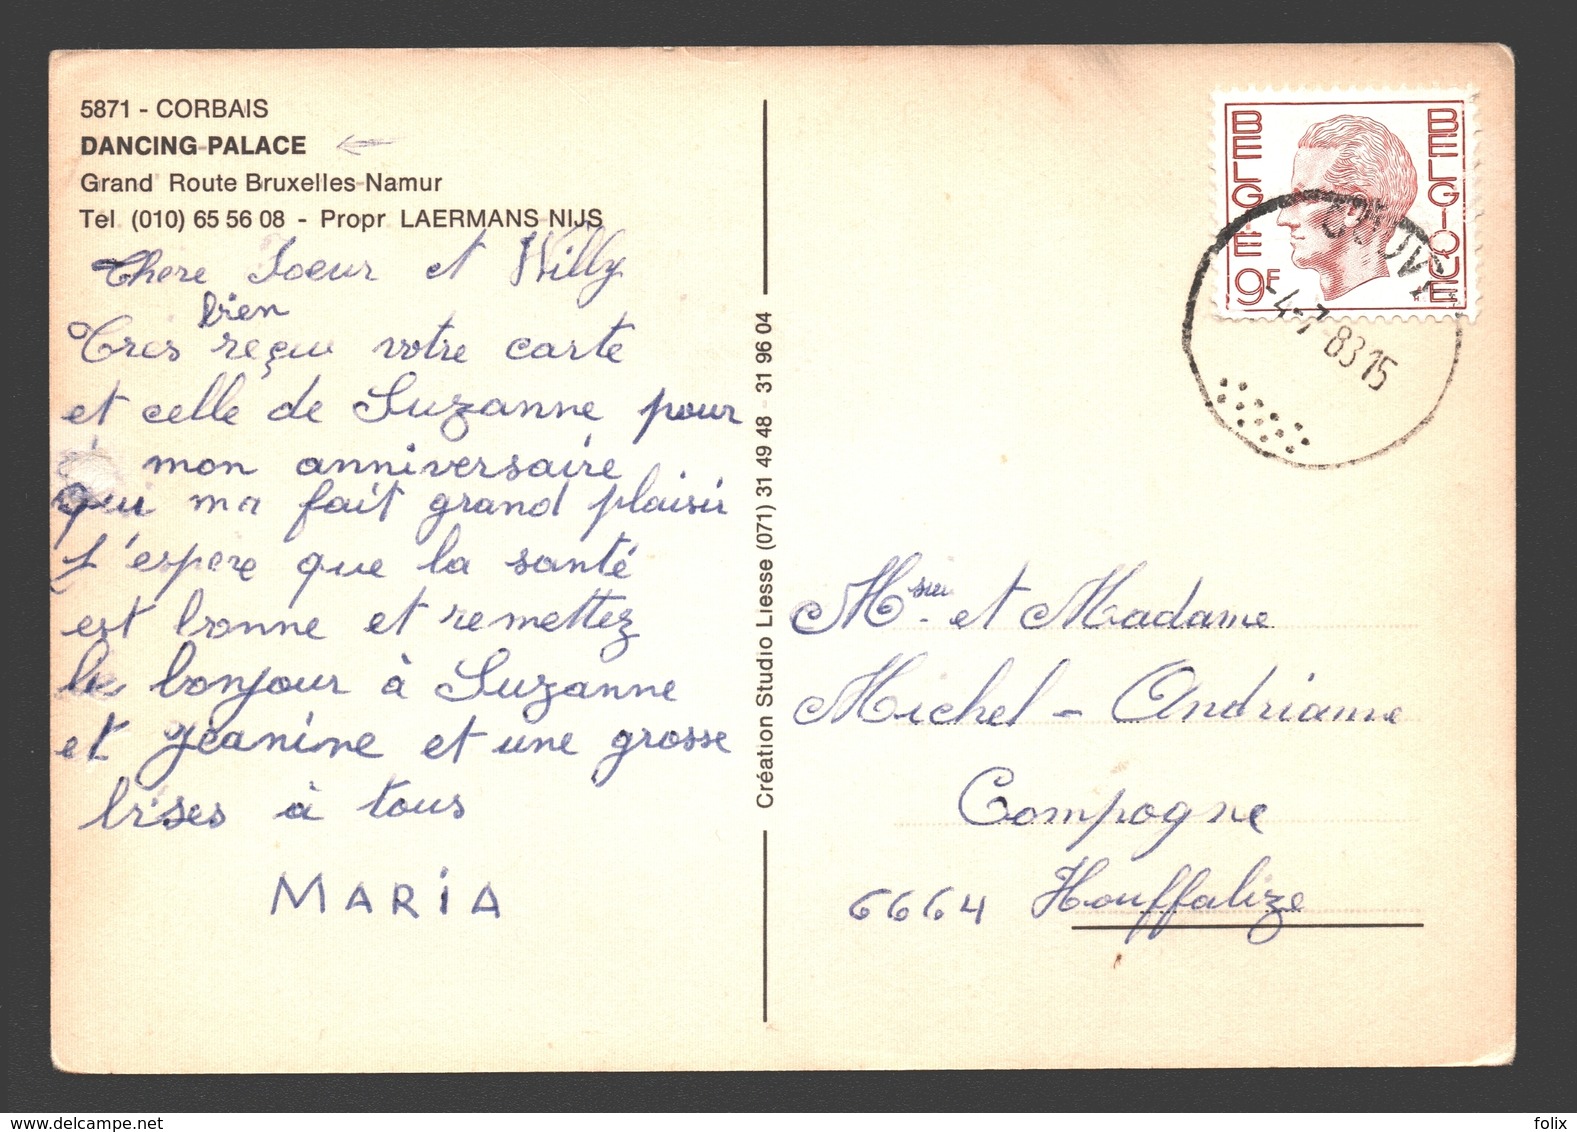 5871 - CORBAIS
DANCING-PALACE
Grand Route Bruxelles-Namur
Tel (010) 65 56 08 - Propr LAERMANS NIJS
Chere Soeur et Willy
bien
Tres reçu votre carte
et celle de Suzanne pour
mon anniversaire
qui ma fait grand plaisir
J'espere que la santé
est bonne et remettez
le bonjour à Suzanne
et Jeanine et une grosse
brses à tous
MARIA
Création Studio Liesse (071) 31 49 48 - 31 96 04
BELGIE
BELGIQUE
9F
GOUVY
-4-7-83 15
Msieu et Madame
Michel - Andrianne
Compogne
6664 Houffalize
folix